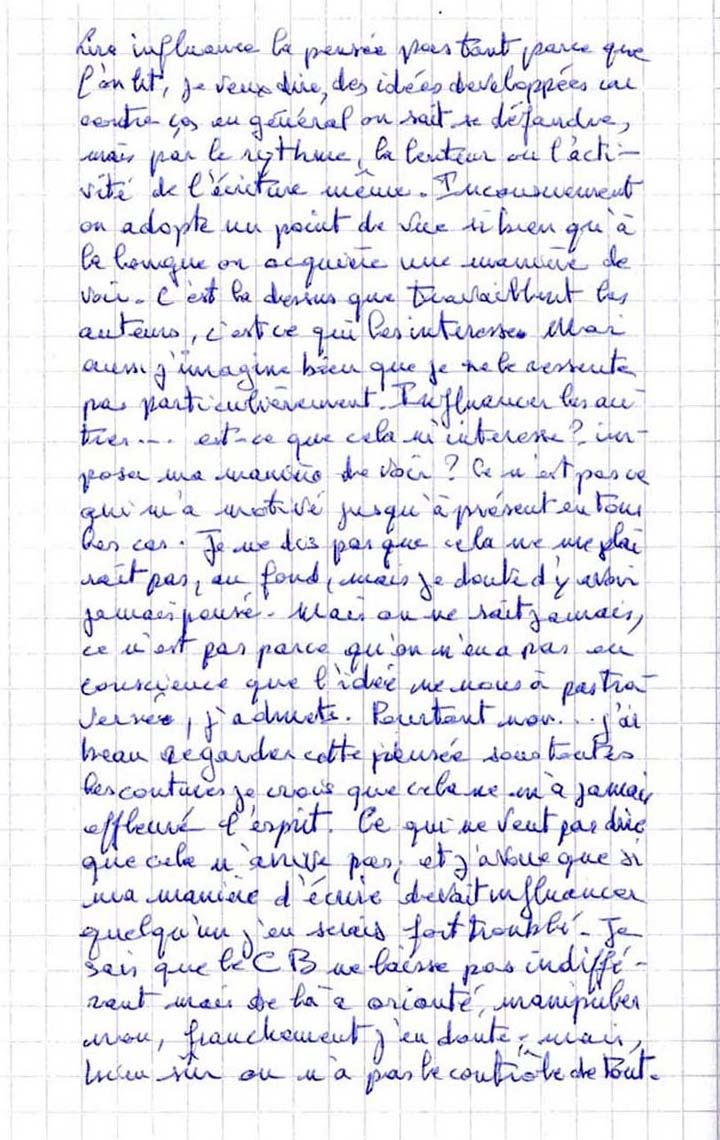 Lire influence la pensée pas tant parce que
l'on lit, je veux dire, des idées developpées car
contre ça en général on sait se défendre,
mais par le rythme, la lenteur ou l'acti-
vité de l'écriture même. Inconsciemment
on adopte un point de vue si bien qu'à
la longue on acquière une manière de
voir. C'est la dessus que travaillent les
auteurs, c'est ce qui les interesse. Moi
aussi j'imagine bien que je ne le ressente
pas particulièrement. Influencer les au-
tres... est-ce que cela m'interesse? im-
poser ma manière de voir? Ce n'est pas ce
qui m'a motivé jusqu'à présent en tous
les cas. Je ne dis pas que cela ne me plai
rait pas, au fond, mais je doute d'y avoir
jamais pensé. Mais on ne sait jamais,
ce n'est pas parce qu'on n'en a pas eu
conscience que l'idée ne nous à pas tra-
versés, j'admets. Pourtant non... j'ai
beau regarder cette pensée sous toutes
les coutures je crois que cela ne m'a jamais
effleuré l'esprit. Ce qui ne veut pas dire
que cela n'arrive pas, et j'avoue que si
ma manière d'écrire devait influencer
quelqu'un j'en serais fort troublé. Je
sais que le CB ne laisse pas indiffé-
rant mais de là a orienté, manipuler
non, franchement j'en doute, mais,
bien sûr on n'a pas le contrôle de tout.